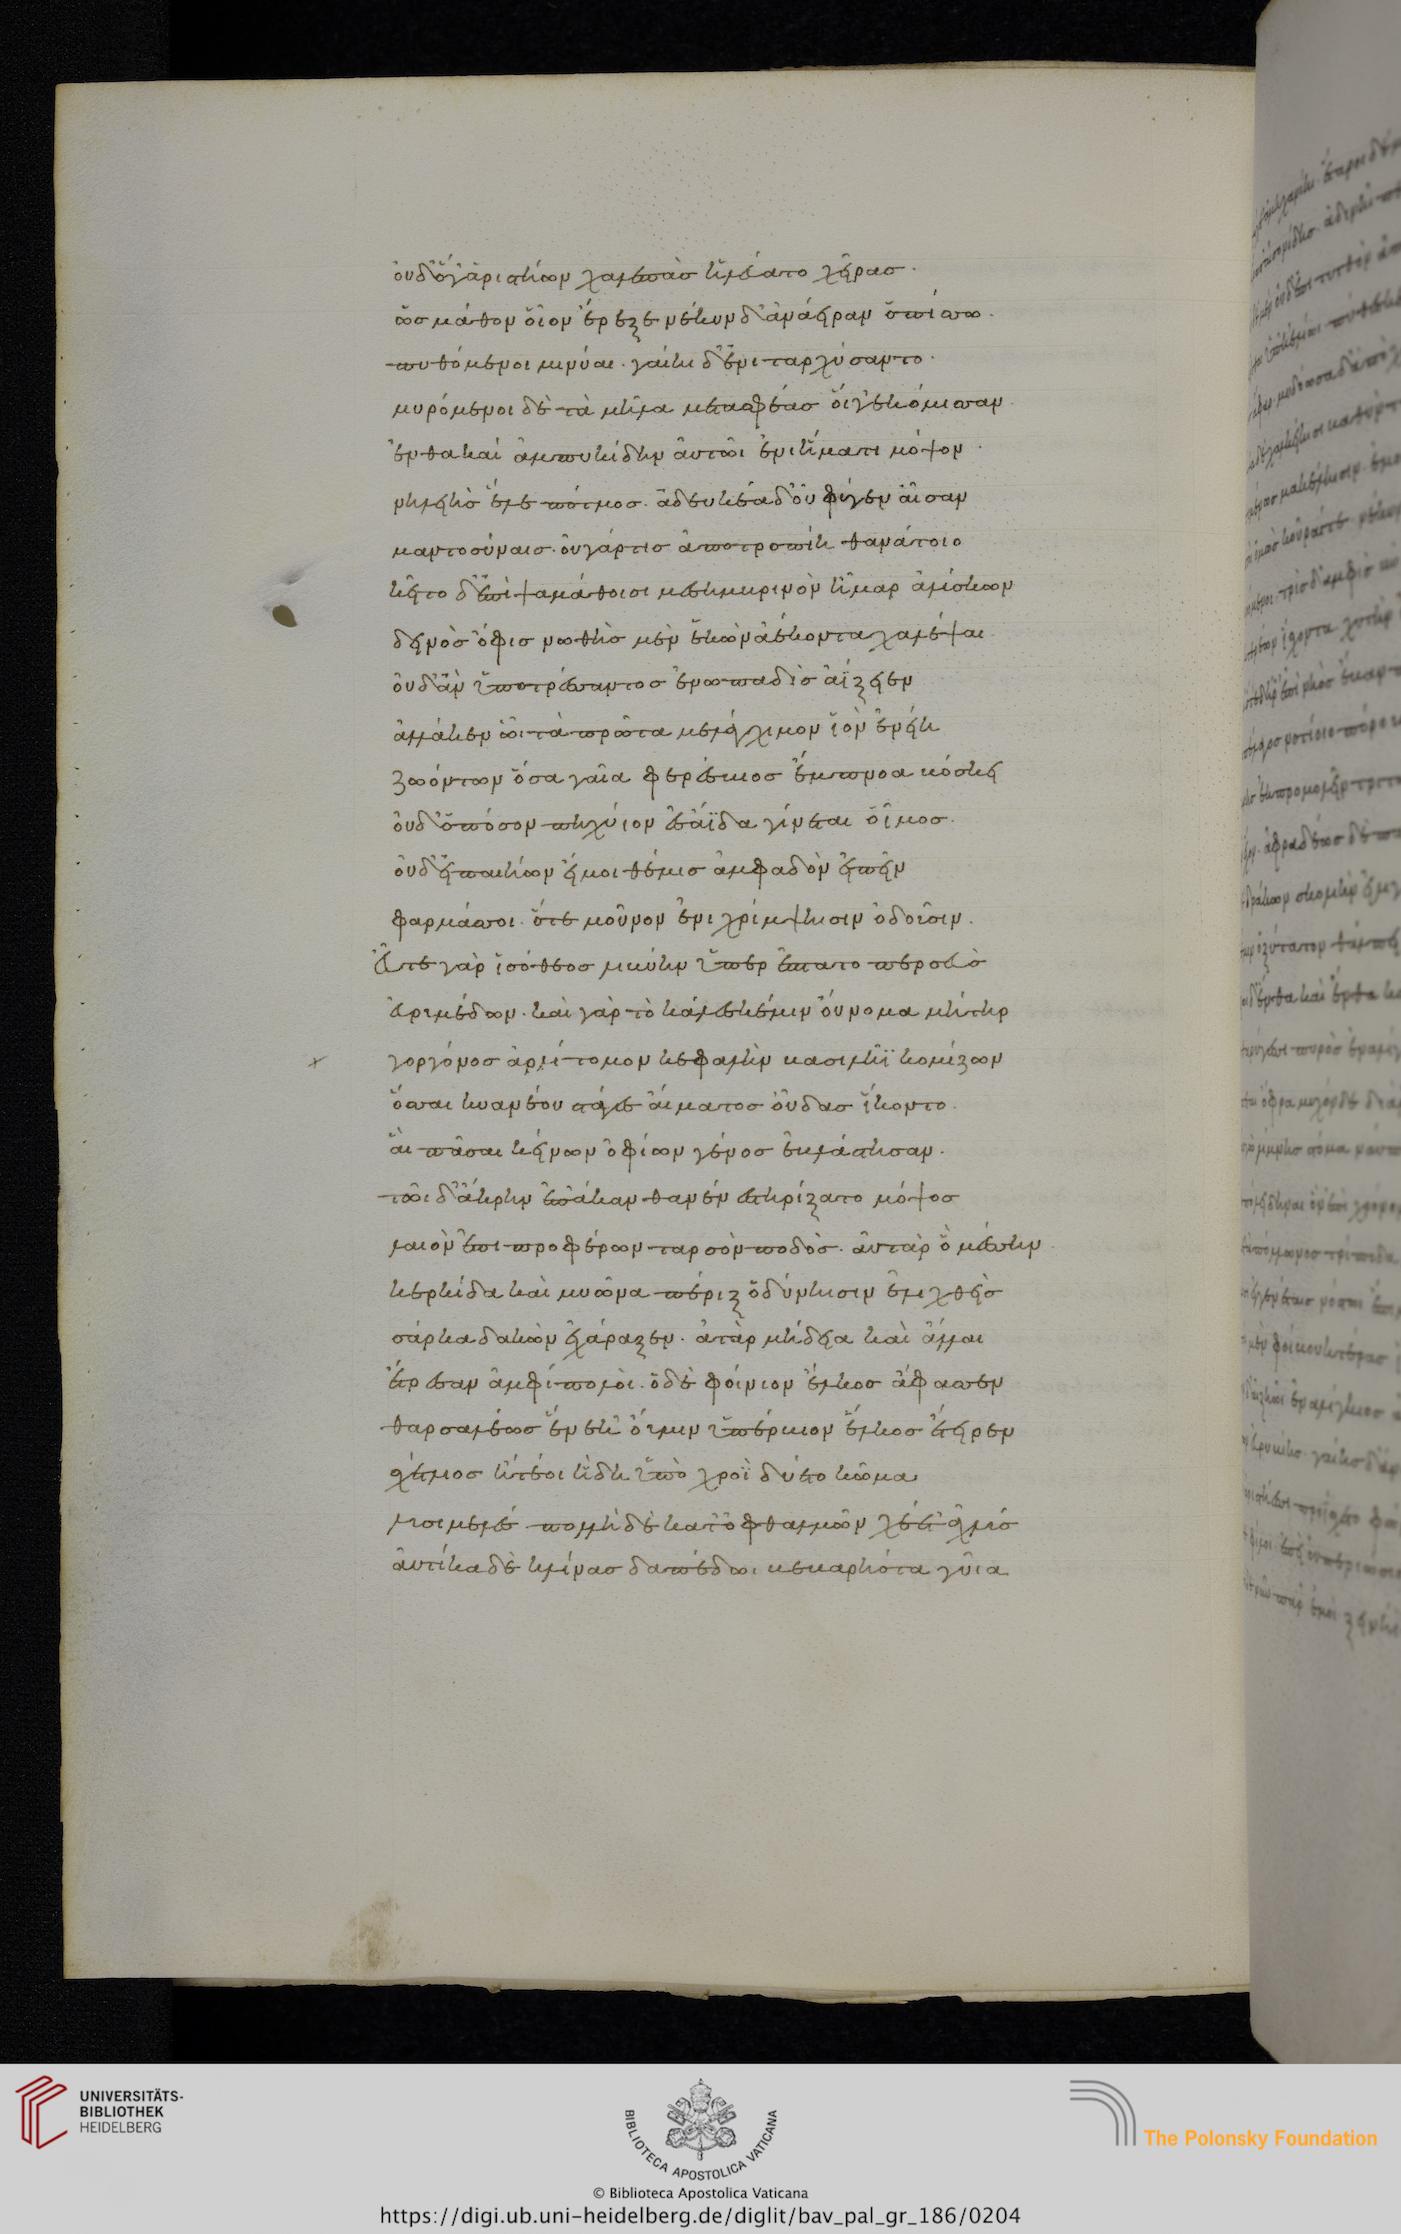 οὐδ' ὅγ' ἀριστήων χαλεπὰς ἠλεύατο χεῖρας.
ὡς μάθον οἷον ἔρεξε νέκυν δ' ἀνάειραν ὀπίσσω.
πυθόμενοι μινύαι. γαίηι δ' ἐνι ταρχύσαντο.
μυρόμενοι δὲ τὰ μῆλα μετασφέας οἵγ' ἐκόμισσαν
ἔνθα καὶ ἀμπυκίδην αὐτῶι ἐνι ἤματι μόψον.
νηλειὴς ἕλε πότμος. ἀδευκέα δ' οὐ φύγεν αἶσαν
μαντοσύναις. οὐ γάρ τις ἀποτροπίη θανάτοιο
κεῖτο δ' ἐπὶ ψαμάθοισι μεσημβρινὸν ἦμαρ ἀλύσκων
δεινὸς ὄφις νωθὴς μὲν ἑκὼν ἀέκοντα χαλέψαι
οὐδ' ἂν ὑποτρέσαντος ἐνωπαδὶς ἀΐξειεν
ἀλλά κεν ὧι τὰ πρῶτα μελάγχιμον ἰὸν ἐνείη
ζωόντων ὅσα γαῖα φερέσβιος ἔμπνοα βόσκει
οὐδ' ὁπόσον πηχύιον ἐς ἄϊδα γίνεται οἶμος.
οὐδ' εἰ παιήων εἴ μοι θέμις ἀμφαδὸν εἰπεῖν
φαρμάσσοι. ὅτε μοῦνον ἐνιχρίμψησιν ὀδοῦσιν.
εὖτε γὰρ ἰσόθεος λιβύην ὑπερ ἔπτατο περσεὺς
εὐρυμέδων. καὶ γὰρ τὸ κάλεσκέ μιν οὔνομα μήτηρ
γοργόνος ἀρτίτομον κεφαλὴν βασιλῆϊ κομίζων
ὅσσαι κυανέου στάγες αἵματος οὖδας ἵκοντο.
αἱ πᾶσαι κείνων ὀφίων γένος ἐβλάστησαν.
τῶι δ' ἄκρην ἐπ' ἄκανθαν ἐνεστηρίξατο μόψος
λαιὸν ἐπιπροφέρων ταρσὸν ποδὸς. αὐτὰρ ὁ μέσσην
κερκίδα καὶ μυῶνα πέριξ ὀδύνηισιν ἑλιχθεὶς
σάρκα δακὼν ἐχάραξεν. ἀτὰρ μήδεια καὶ ἄλλαι
ἔτρεσαν ἀμφίπολοι. ὁ δὲ φοίνιον ἕλκος ἄφασσεν
θαρσαλέως ἕνεκ' οὔ μιν ὑπέρβιον ἕλκος ἔτειρεν
σχέτλιος ἦ τέ οἱ ἤδη ὑπὸ χροῒ δύετο κῶμα
λυσιμελὲς πολλὴ δὲ κατ' ὀφθαλμῶν χέετ' ἀχλύς
αὐτίκα δὲ κλίνας δαπέδωι βεβαρηότα γυῖα
UNIVERSITÄTS-
BIBLIOTHEK
HEIDELBERG
BIBLIOTECA APOSTOLICA VATICANA
© Biblioteca Apostolica Vaticana
The Polonsky Foundation
https://digi.ub.uni-heidelberg.de/diglit/bav_pal_gr_186/0204